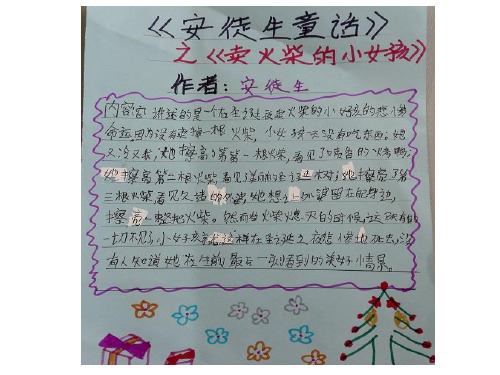 《安徒生童话》
之《卖火柴的小女孩》
作者:安徒生
内容 讲述的是一个在圣诞夜卖火柴的小女孩的悲惨
命运因为没有卖掉一根火柴,小女孩一天没有吃东西。她
又冷又饿,她擦亮了第一根火柴,看见了喷香的烤鹅;
她擦亮第二根火柴看见美丽的圣诞树;她擦亮了第
三根火柴看见久违的外婆她想把外婆留在身边,
擦亮一整把火柴。然而当火柴熄灭的时候,这所有的
一切不见了小女孩就这样在圣诞之夜悲惨地死去,没
有人知道她在生前最后一刻看到的美好情景。